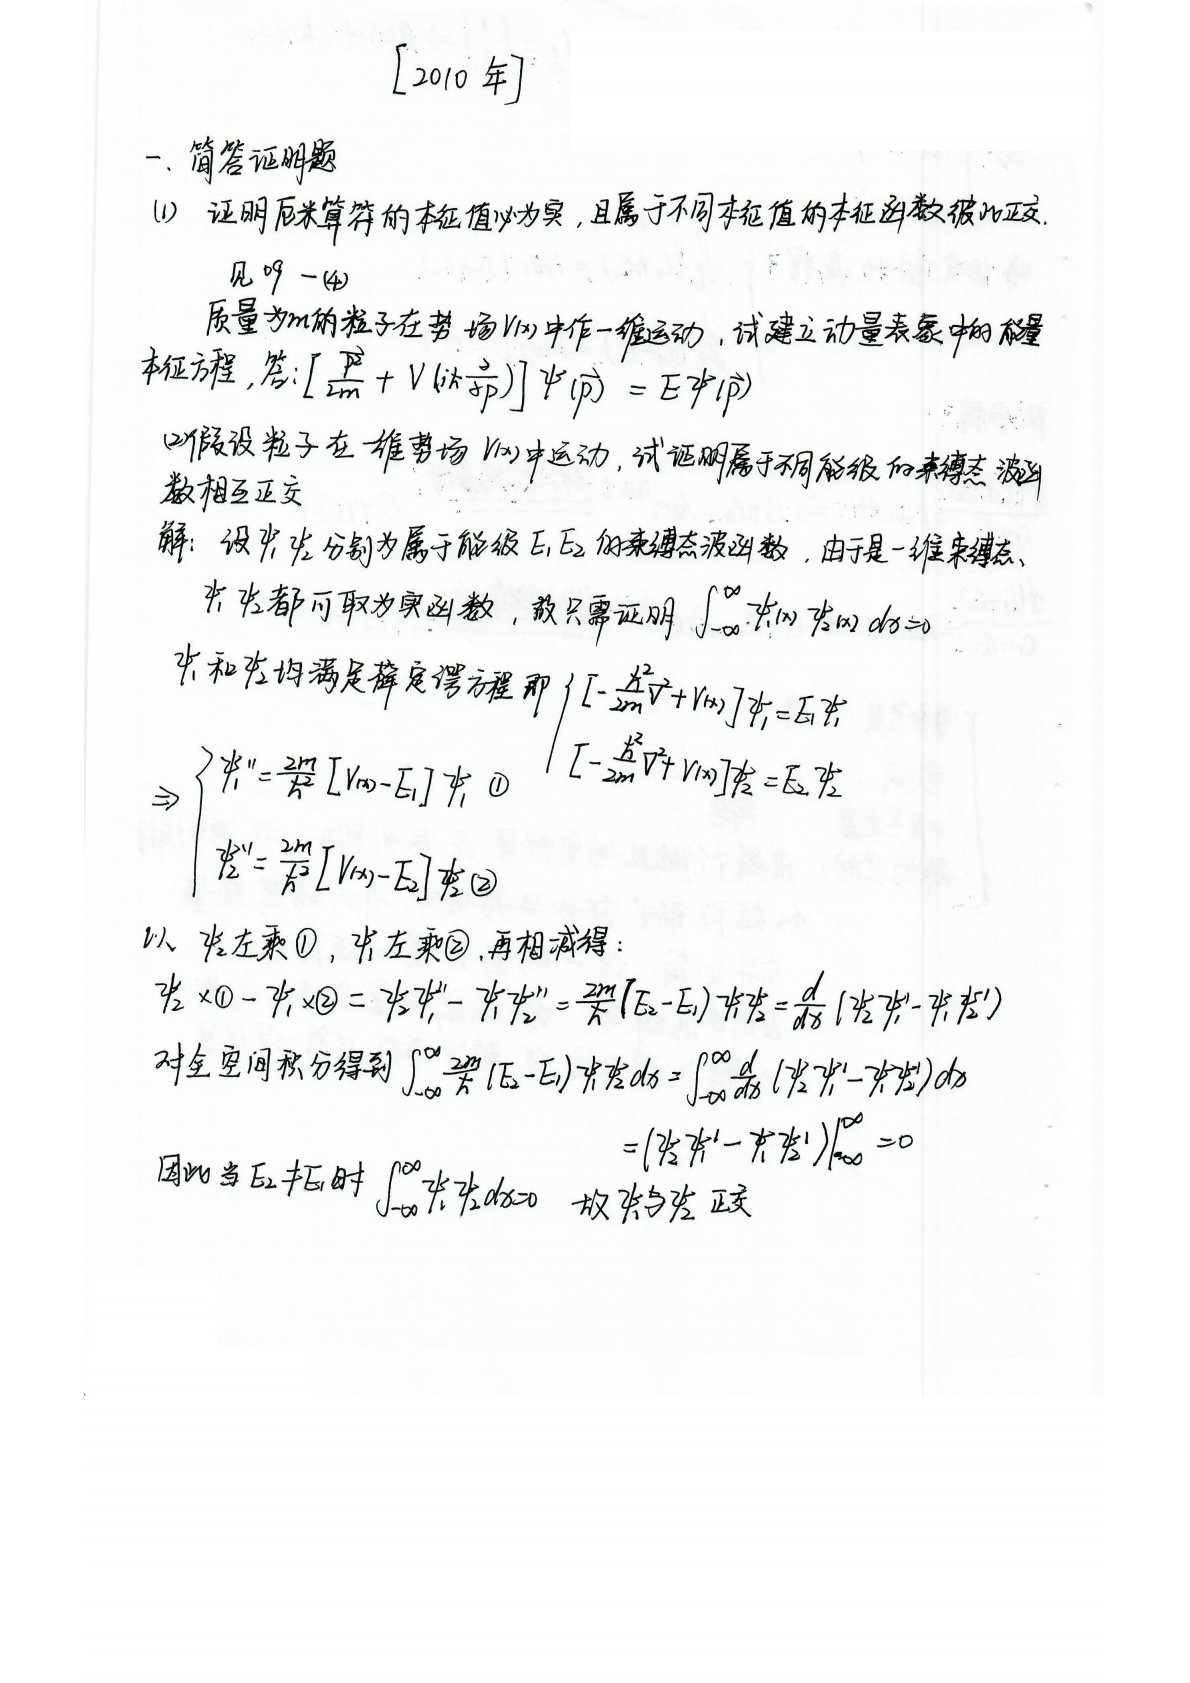 [2010年]
一、简答证明题
(1) 证明厄米算符的本征值必为实，且属于不同本征值的本征函数彼此正交.
见09 一(4)
质量为m的粒子在势场V(x)中作一维运动，试建立动量表象中的能量
本征方程，答:[p⃗²/2m + V(iħ ∂/∂p)]ψ(p⃗) = Eψ(p⃗)
(2)假设粒子在一维势场V(x)中运动，试证明属于不同能级的束缚态波函
数相互正交
解：设ψ₁ ψ₂分别为属于能级E₁E₂的束缚态波函数，由于是一维束缚态、
ψ₁ ψ₂都可取为实函数，故只需证明 ∫_{-∞}^{∞} ψ₁(x) ψ₂(x) dx=0
ψ₁和ψ₂均满足薛定谔方程即 { [-ħ²/2m ∇²+V(x)]ψ₁=E₁ψ₁
[-ħ²/2m ∇²+V(x)]ψ₂=E₂ψ₂
⇒ { ψ₁''=2m/ħ² [V(x)-E₁]ψ₁ ①
ψ₂''=2m/ħ² [V(x)-E₂]ψ₂ ②
以ψ₂左乘①，ψ₁左乘②，再相减得：
ψ₂×①-ψ₁×②=ψ₂ψ₁''-ψ₁ψ₂''=2m/ħ (E₂-E₁)ψ₁ψ₂=d/dx (ψ₂ψ₁'-ψ₁ψ₂')
对全空间积分得到 ∫_{-∞}^{∞} 2m/ħ (E₂-E₁)ψ₁ψ₂dx=∫_{-∞}^{∞} d/dx (ψ₂ψ₁'-ψ₁ψ₂')dx
=(ψ₂ψ₁'-ψ₁ψ₂')|_{-∞}^{∞}=0
因此当E₂≠E₁时 ∫_{-∞}^{∞} ψ₁ψ₂dx=0 故ψ₁与ψ₂正交